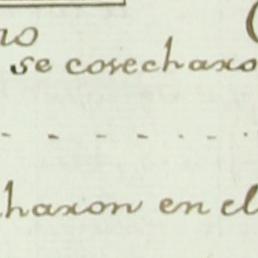 no
se cosecharo
haron en el